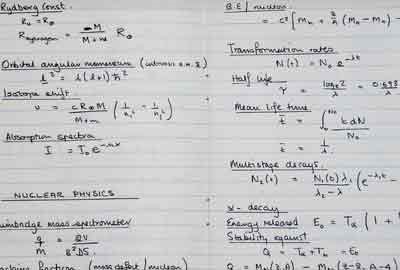 Rydberg Const.
R∞ = R∞
R hydrogen = M / M + m R∞
Orbital angular momentum
l² = l(l+1) ħ²
Isotope shift
ν = c R∞ M / M + m ( 1/n₁² - 1/n₂² )
Absorption spectra
I = I₀ e
NUCLEAR PHYSICS
mass spectrometer
q / M = 2V / B²D
fraction (mass defect / nucleon)
B.E / nucleon
= c² [ Mn + Z/A (MH - Mn) -
Transformation rates
N(t) = N₀ e^-λt
Half life
τ = loge 2 / λ = 0.693
Mean life time
t̄ = ∫ t dN / N₀
t̄ = 1/λ
Multistage decays.
N₂(t) = N₁(0) λ₁ / λ₂ - λ ( e^-λ₁t -
α - decay
Energy released E₀ = Tα ( 1 +
Stability against
Q = Tα + Tb = E₀